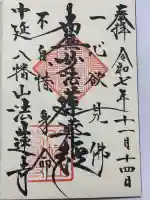 奉拝 令和七年十一月十四日
一心欲見佛
南無妙法蓮華経
不自惜身命
中延八幡山法蓮寺